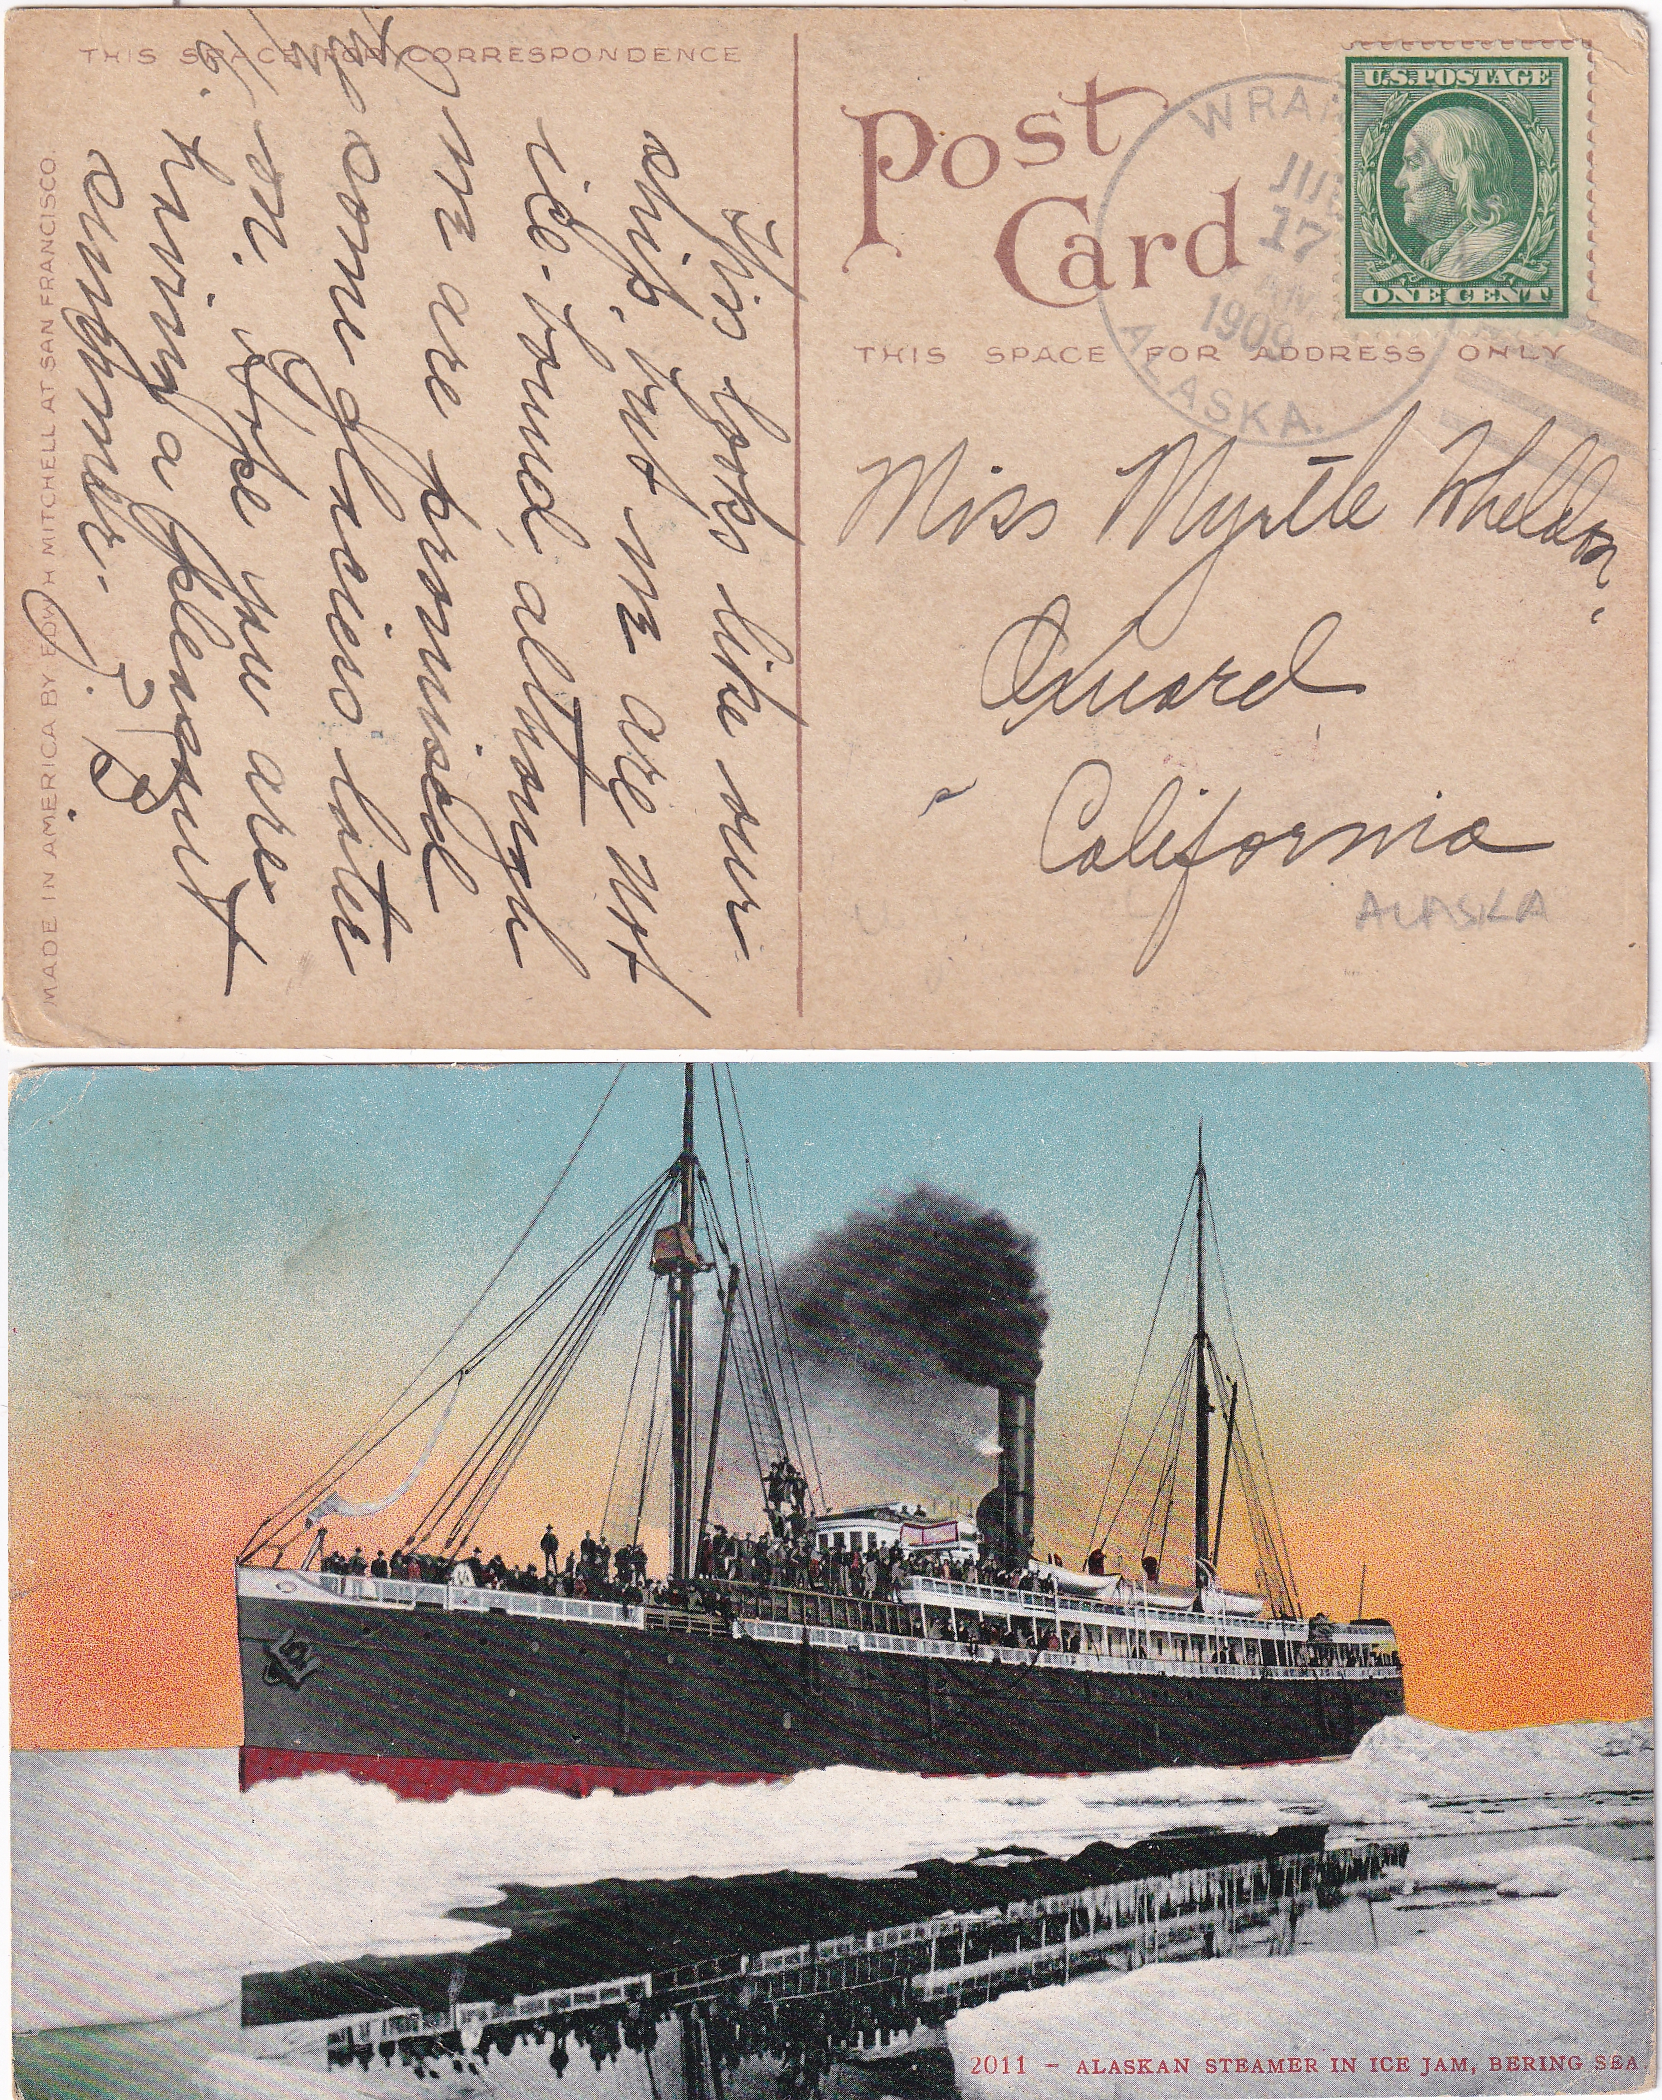 THIS SPACE FOR CORRESPONDENCE
This looks like our
ship, but we are not
ice-bound, although
we are promised
some glaciers later
on. Hope you are
having a pleasant
summer.
MADE IN AMERICA BY EDW. H MITCHELL AT SAN FRANCISCO.
Post
Card
WRAN
17
1909
ALASKA.
U.S. POSTAGE
ONE CENT
THIS SPACE FOR ADDRESS ONLY
Miss Myrtle Wheldon,
Oxnard
California
ALASKA
2011 - ALASKAN STEAMER IN ICE JAM, BERING SEA.